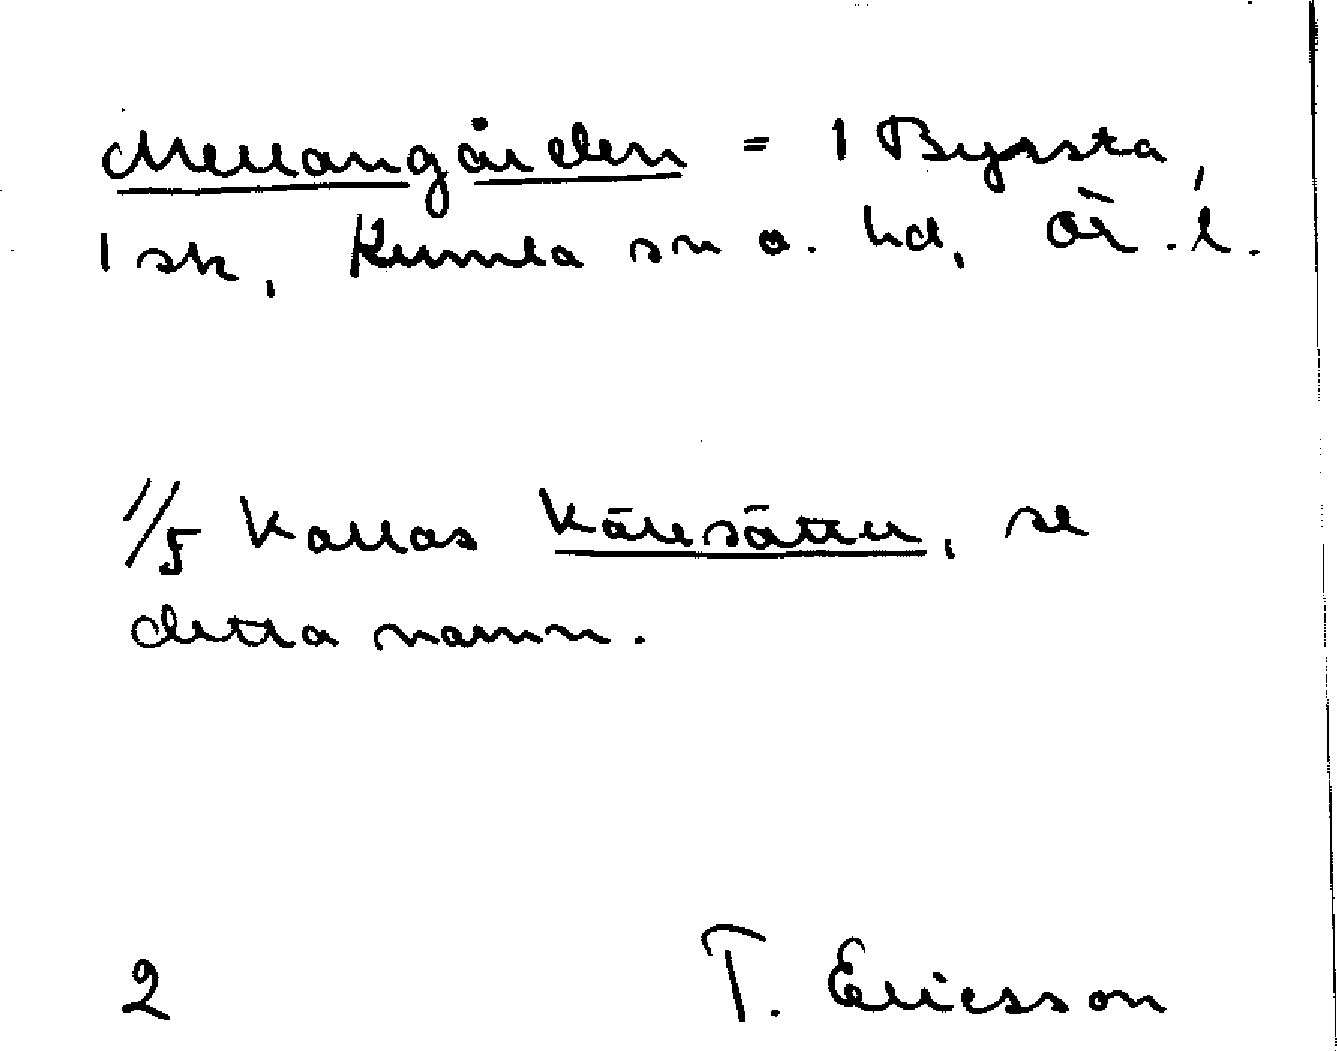 Mellangården = 1 Byrsta,
1 sk, Kumla sn o. hd, Ör. l.
1/5 kallas Källsätter, se
detta namn.
2 T. Ericsson